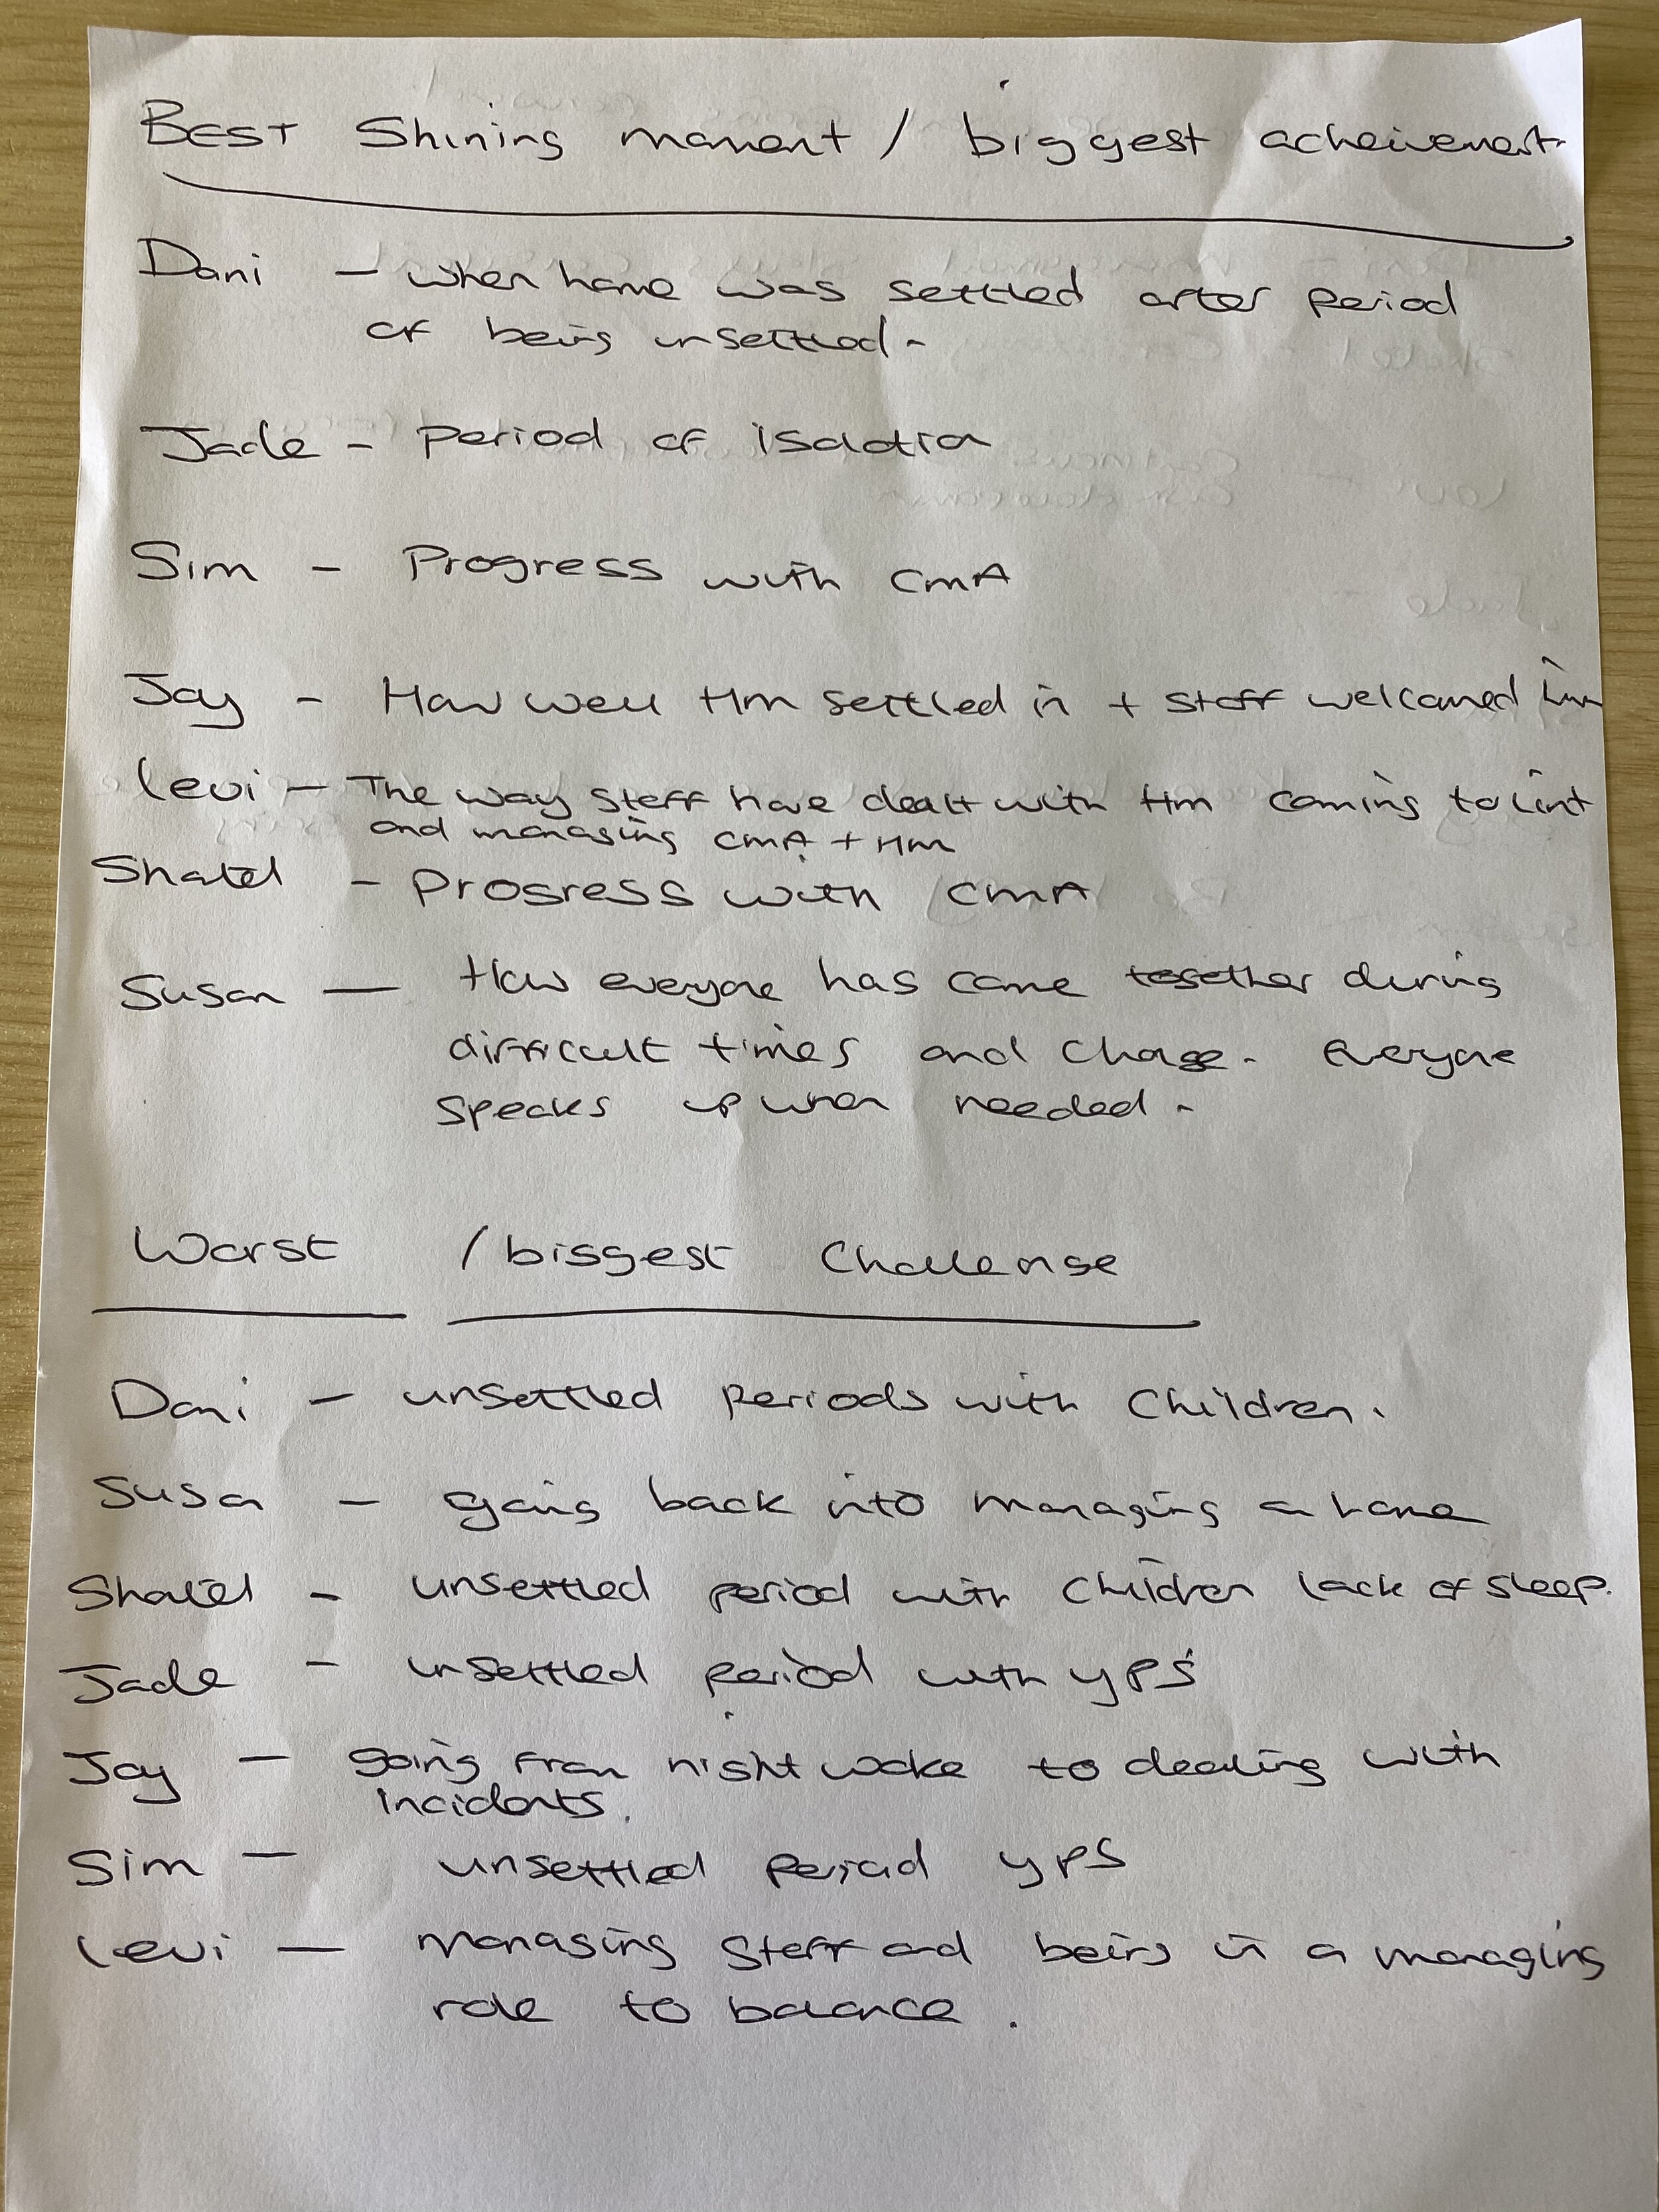 Best Shining moment / biggest acheivement
Dani - when home was settled after period
of being unsettled.
Jade - Period of isolation
Sim - Progress with CMA
Jay - How well HM settled in + staff welcomed him
Levi - The way staff have dealt with HM coming to
and managing CMA + HM
- Progress with CMA
Susan - How everyone has come together during
difficult times and change. Everyone
speaks up when needed.
Worst / biggest Challenge
Dani - unsettled periods with Children.
Susan - going back into managing a home
- unsettled period with children lack of sleep.
Jade - unsettled period with yps
Jay - going from night woke to dealing with
incidents.
Sim - unsettled period yps
Levi - managing staff and being in a managing
role to balance.